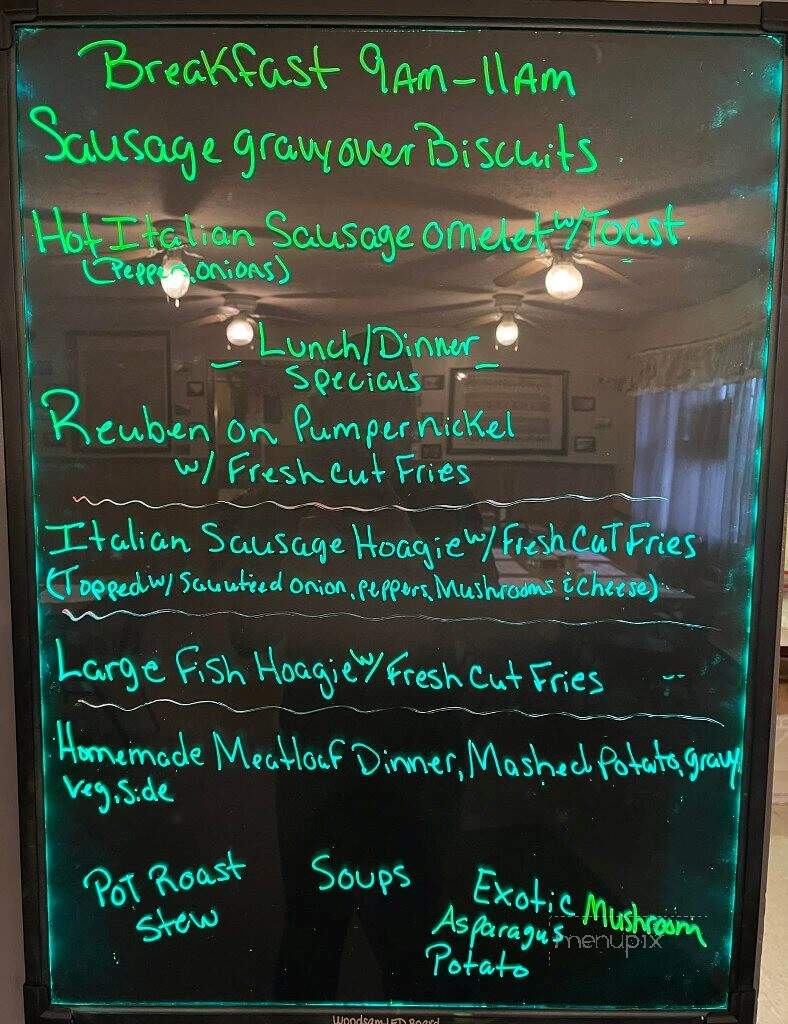 Breakfast 9AM-11AM
Sausage gravy over Biscuits
Hot Italian Sausage omelet w/ Toast
(Peppers, onions)
- Lunch/Dinner -
Specials
Reuben on Pumpernickel
w/ Fresh cut Fries
Italian Sausage Hoagie w/ Fresh Cut Fries
(Topped w/ Sauuteed onion, peppers, Mushrooms & cheese)
Large Fish Hoagie w/ Fresh Cut Fries --
Homemade Meatloaf Dinner, Mashed Potato, gravy
Veg, Side
Pot Roast
Stew
Soups
Exotic Mushroom
Asparagus
Potato
menupix
Woodsam LED Board